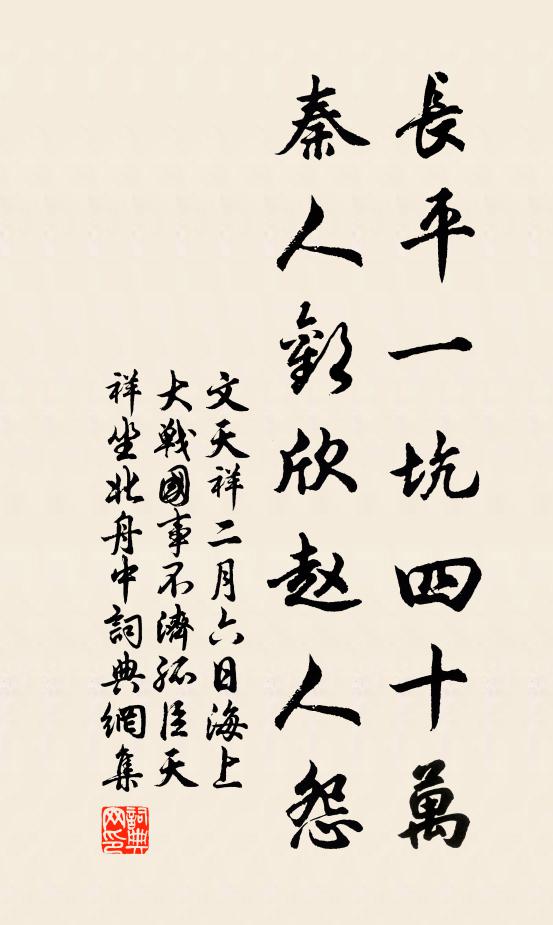 長平一坑四十萬
秦人歡欣趙人怨
文天祥二月六日海上
大戰國事不濟孤臣天
祥坐北舟中詞典網集
詞典
网印